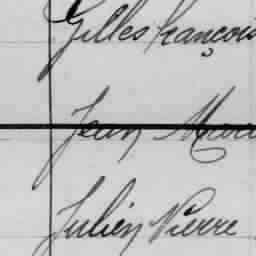 Gilles François
Jean Marie
Julien Pierre